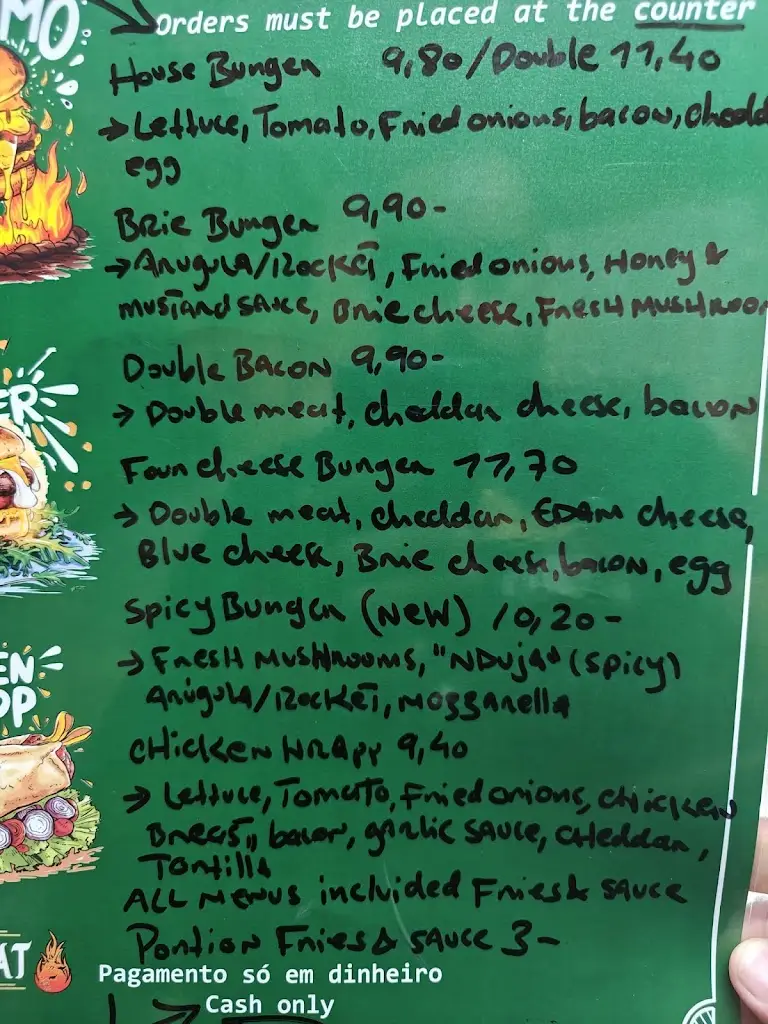 MO
Orders must be placed at the counter
House Burger 9,80/Double 11,40
→ Lettuce, Tomato, Fried onions, bacon, chedd
egg
Brie Burger 9,90-
→ Arugula/Rocket, Fried onions, Honey &
mustard sauce, Brie cheese, Fresh mushroom
Double Bacon 9,90-
ER
→ Double meat, cheddar cheese, bacon
Four cheese Burger 11,70
→ Double meat, cheddar, EDAM cheese,
Blue cheese, Brie cheese, bacon, egg
Spicy Burger (New) 10,20-
EN
→ Fresh mushrooms, "NDuja" (spicy)
OP
Arugula/Rocket, mozzarella
Chicken Wrapp 9,40
→ Lettuce, Tomato, Fried onions, chicken
Breast, bacon, garlic sauce, cheddar,
Tortilla
ALL MENUS included Fries & sauce
Portion Fries & sauce 3-
AT
Pagamento só em dinheiro
→ Cash only